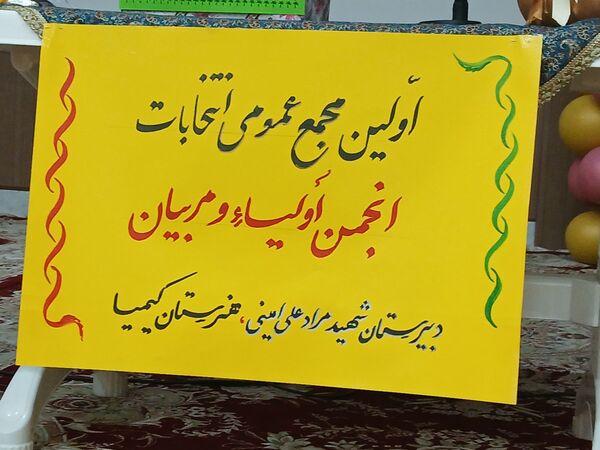 اوّلین مجمع عمومی انتخابات
انجمن أولیاءِ و مربیان
دبیرستان شهید مراد علی امینی، هنرستان کیمیا